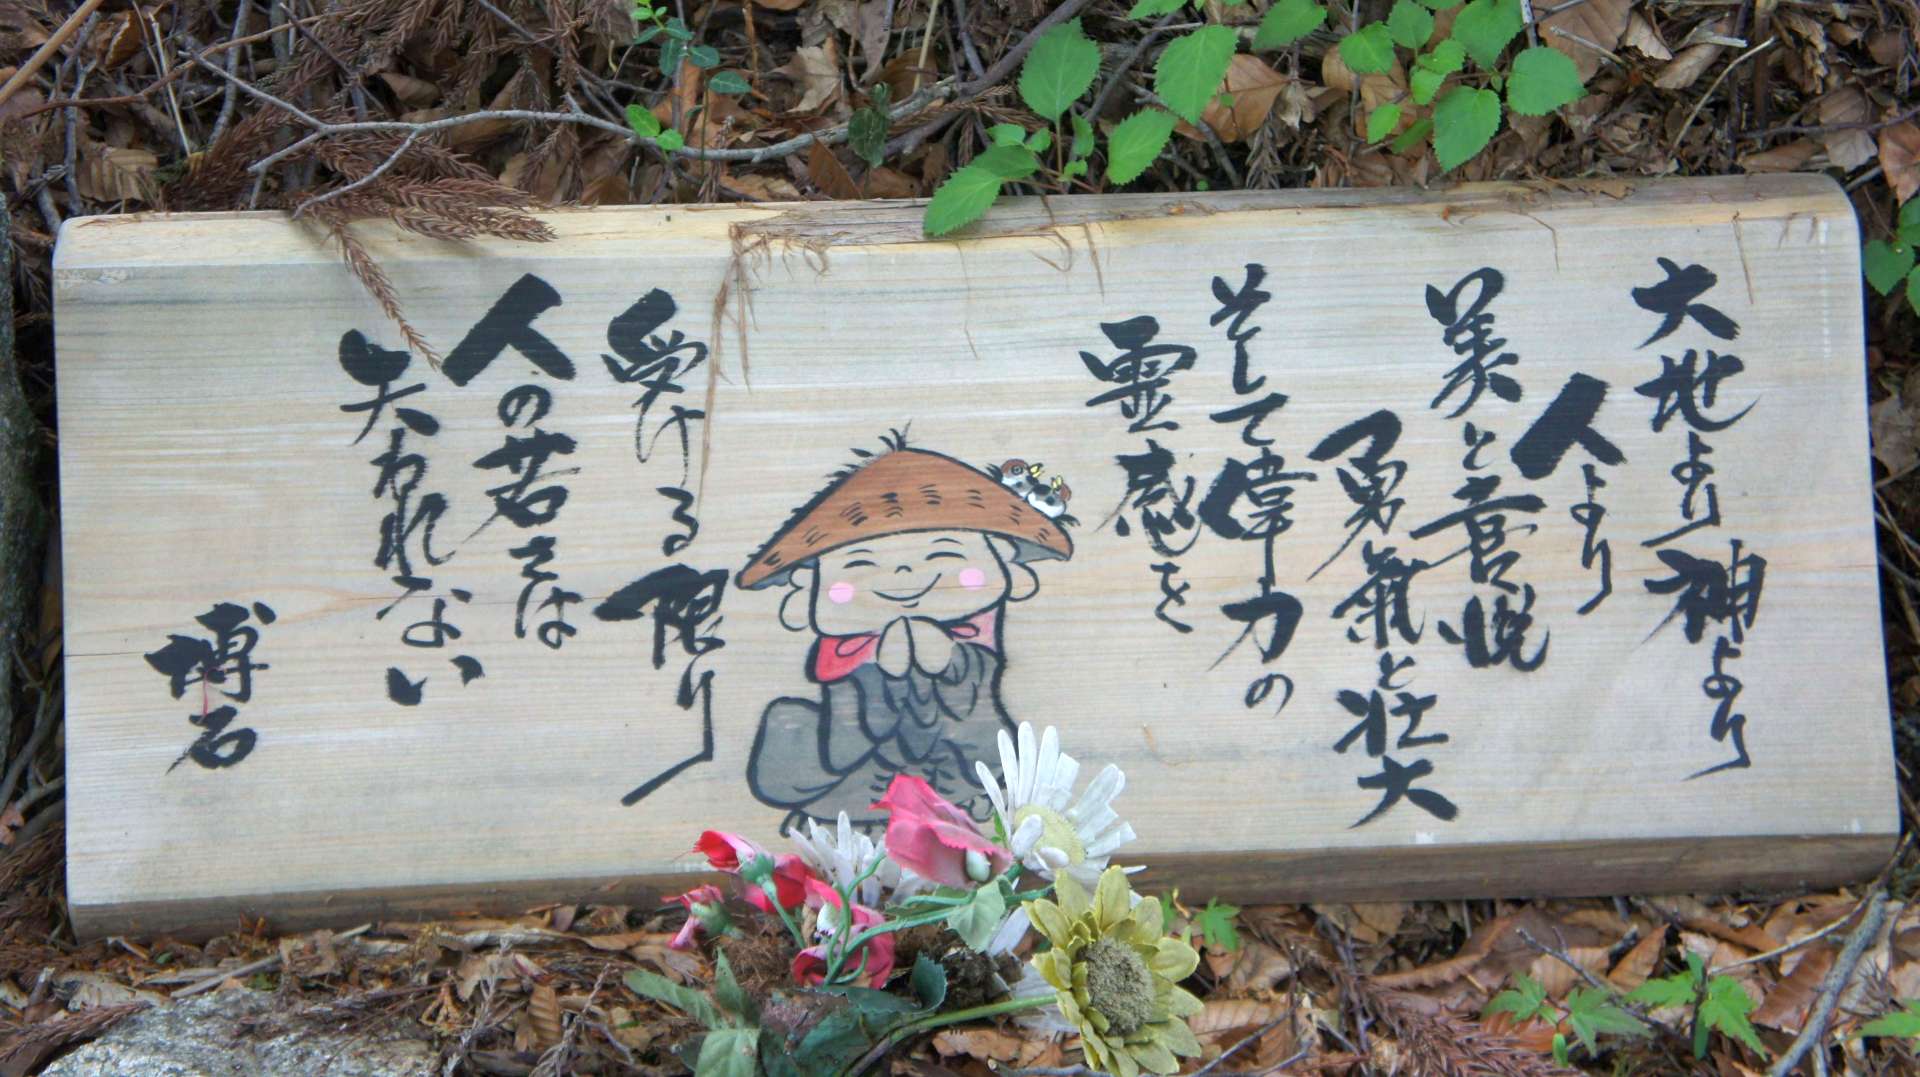 大地より神より
人より
美と喜悦
勇氣と壮大
そして偉力の
霊感を
受ける限り
人の若さは
失われない
博石